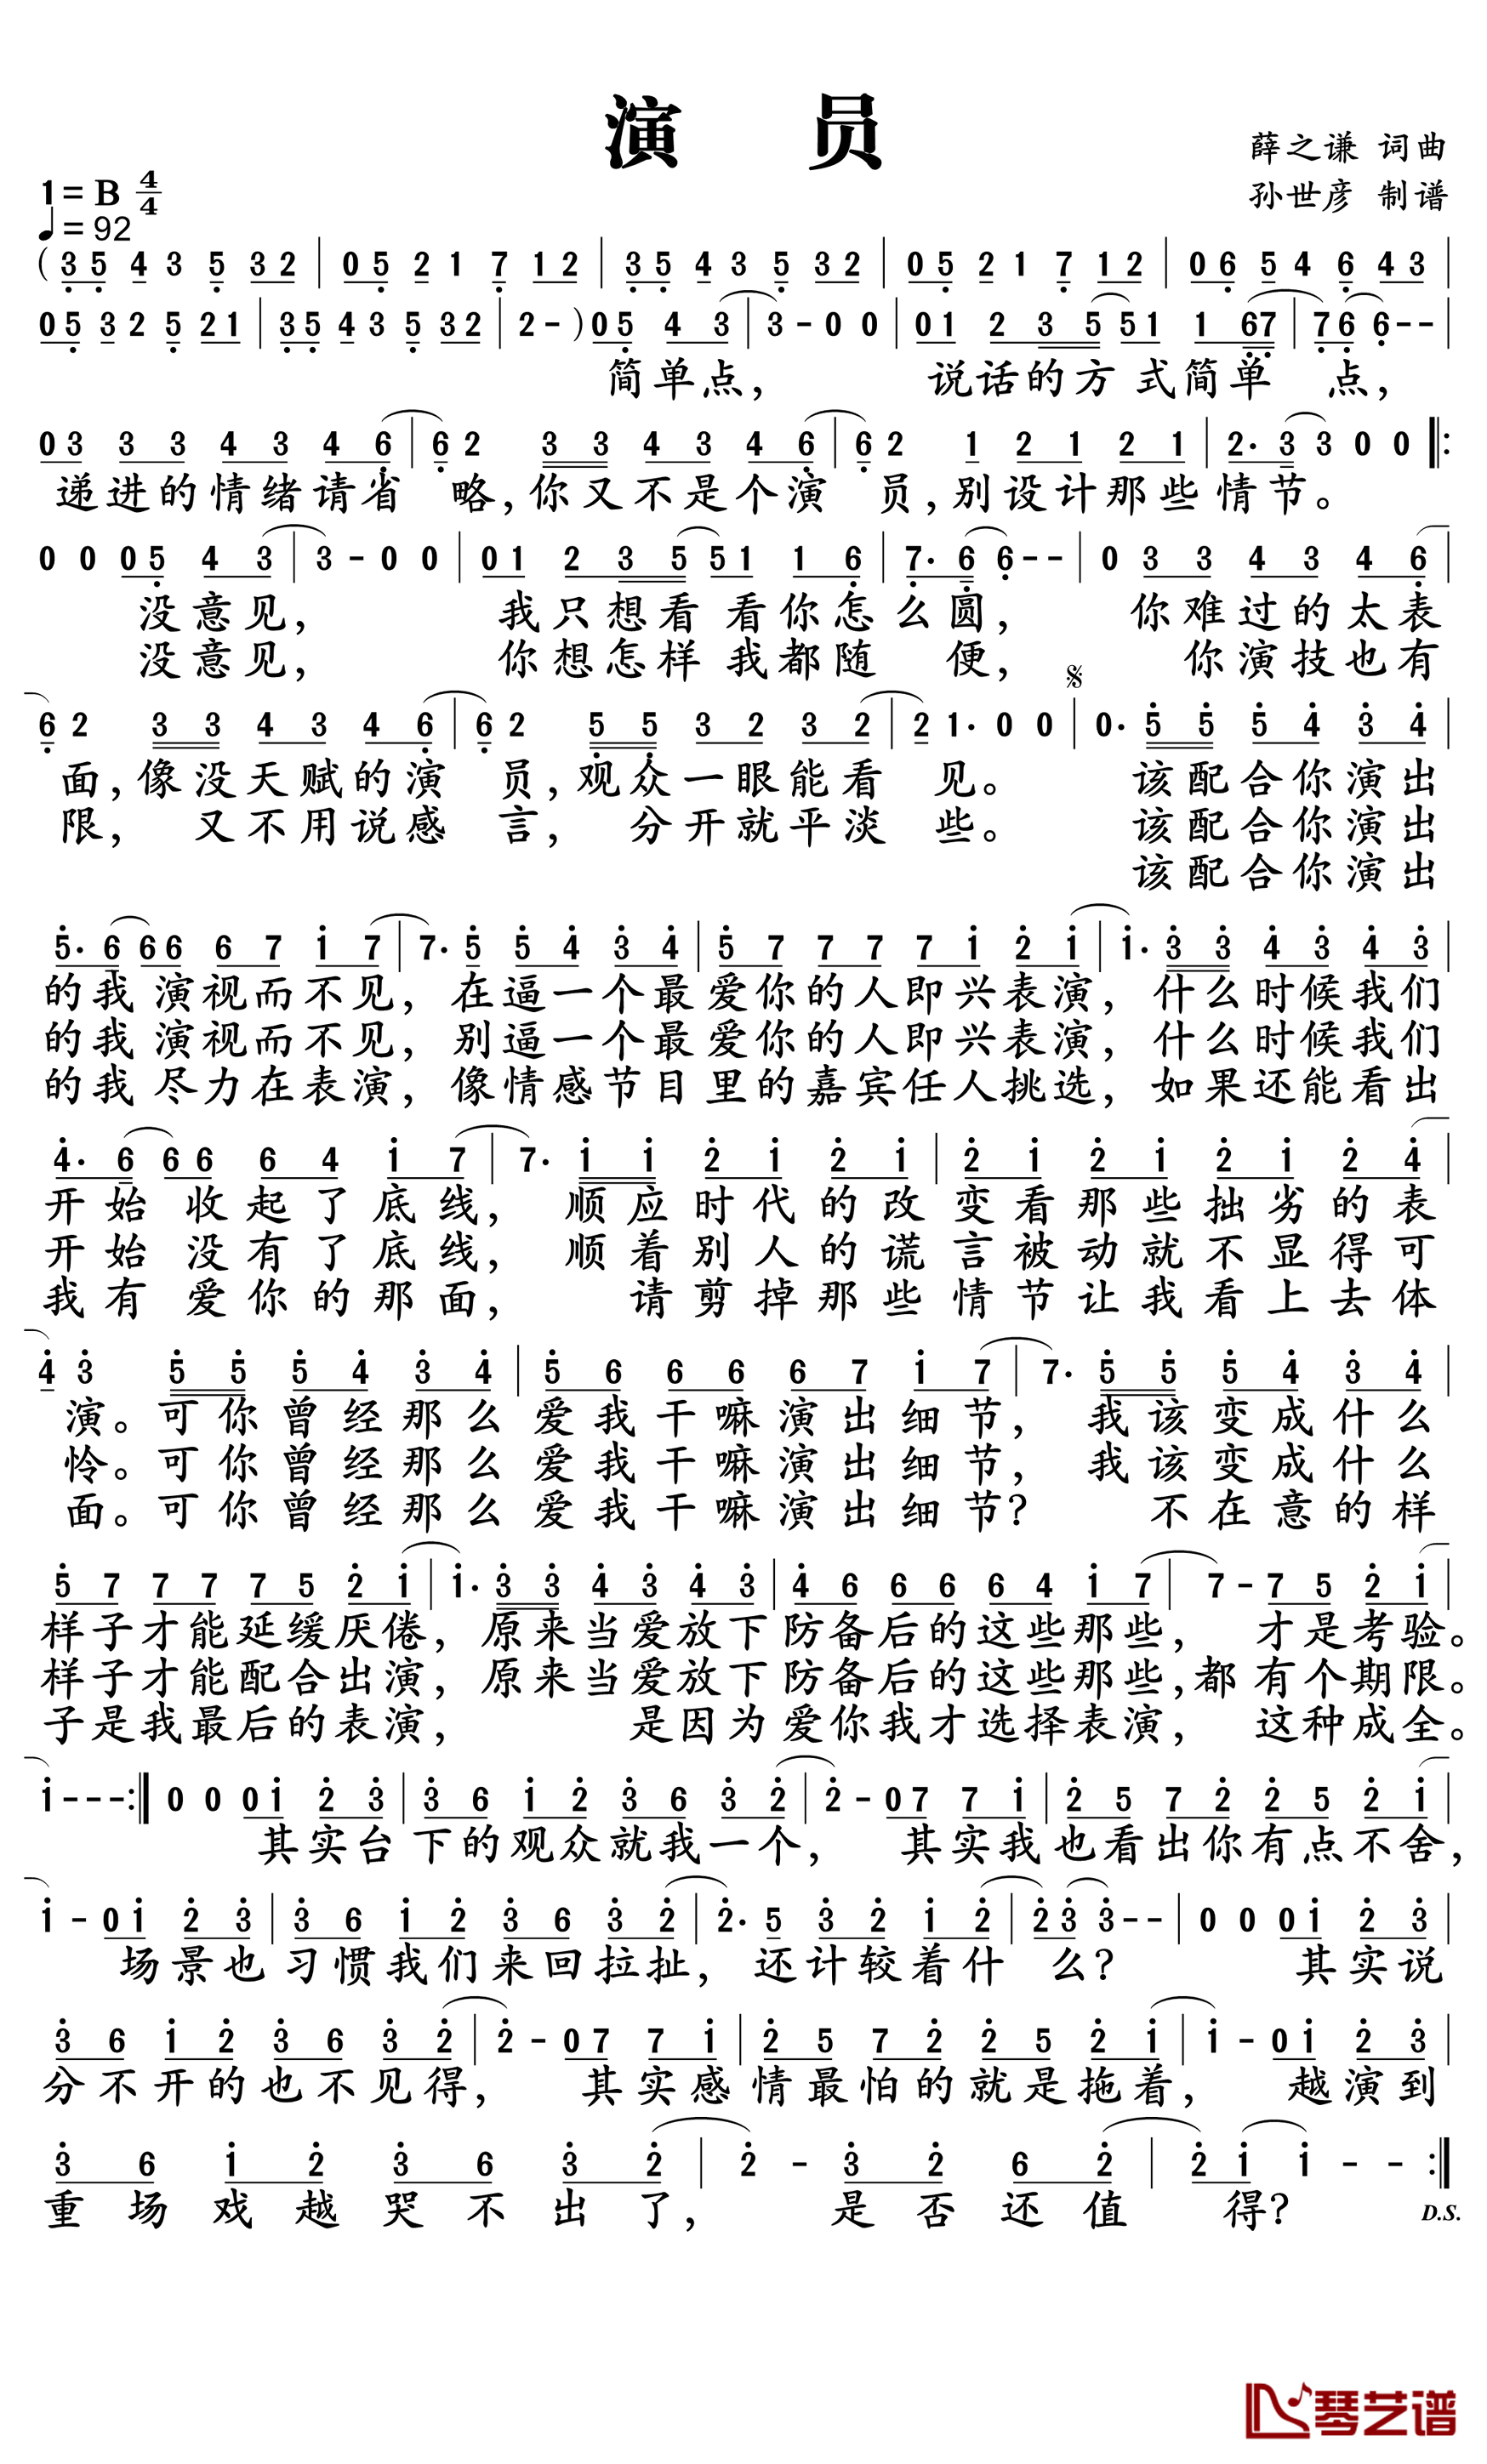 演 员
薛之谦 词曲
1=B 4/4
孙世彦 制谱
♩=92
(3 5 4 3 5 3 2 | 0 5 2 1 7 1 2 | 3 5 4 3 5 3 2 | 0 5 2 1 7 1 2 | 0 6 5 4 6 4 3 |
0 5 3 2 5 2 1 | 3 5 4 3 5 3 2 | 2 - ) 0 5 4 3 | 3 - 0 0 | 0 1 2 3 5 5 1 1 6 7 | 7 6 6 - - |
简单点， 说话的方 式简单 点，
0 3 3 3 4 3 4 6 | 6 2 3 3 4 3 4 6 | 6 2 1 2 1 2 1 | 2· 3 3 0 0 ‖:
递进的情绪请省 略，你又不是个演 员，别设计那些情节。
0 0 0 5 4 3 | 3 - 0 0 | 0 1 2 3 5 5 1 1 6 | 7· 6 6 - - | 0 3 3 4 3 4 6 |
没意见， 我只想看 看你怎么圆， 你难过的太表
没意见， 你想怎样 我都随 便， 你演技也有
6 2 3 3 4 3 4 6 | 6 2 5 5 3 2 3 2 | 2 1· 0 0 | 0· 5 5 5 4 3 4 |
面，像没天赋的演 员，观众一眼能看 见。 该配合你演出
限， 又不用说感 言， 分开就平淡 些。 该配合你演出
该配合你演出
5· 6 6 6 6 7 1 7 | 7· 5 5 4 3 4 | 5 7 7 7 7 1 2 1 | 1· 3 3 4 3 4 3 |
的我 演视而不见，在逼一个最爱你的人即兴表演，什么时候我们
的我 演视而不见，别逼一个最爱你的人即兴表演，什么时候我们
的我 尽力在表演，像情感节目里的嘉宾任人挑选，如果还能看出
4· 6 6 6 6 4 1 7 | 7· 1 1 2 1 2 1 | 2 1 2 1 2 1 2 4 |
开始 收起了底线， 顺应时代的改变看那些拙劣的表
开始 没有了底线， 顺着别人的谎言被动就不显得可
我有 爱你的那面， 请剪掉那些情节让我看上去体
4 3 5 5 5 4 3 4 | 5 6 6 6 6 7 1 7 | 7· 5 5 5 4 3 4 |
演。可你曾经那么爱我干嘛演出细节， 我该变成什么
怜。可你曾经那么爱我干嘛演出细节， 我该变成什么
面。可你曾经那么爱我干嘛演出细节？ 不在意的样
5 7 7 7 7 5 2 1 | 1· 3 3 4 3 4 3 | 4 6 6 6 6 4 1 7 | 7 - 7 5 2 1 |
样子才能延缓厌倦，原来当爱放下防备后的这些那些， 才是考验。
样子才能配合出演，原来当爱放下防备后的这些那些，都有个期限。
子是我最后的表演， 是因为爱你我才选择表演， 这种成全。
1 - - - :‖ 0 0 0 1 2 3 | 3 6 1 2 3 6 3 2 | 2 - 0 7 7 1 | 2 5 7 2 2 5 2 1 |
其实台下的观众就我一个， 其实我也看出你有点不舍，
1 - 0 1 2 3 | 3 6 1 2 3 6 3 2 | 2· 5 3 2 1 2 | 2 3 3 - - | 0 0 0 1 2 3 |
场景也习惯我们来回拉扯， 还计较着什 么？ 其实说
3 6 1 2 3 6 3 2 | 2 - 0 7 7 1 | 2 5 7 2 2 5 2 1 | 1 - 0 1 2 3 |
分不开的也不见得， 其实感情最怕的就是拖着， 越演到
3 6 1 2 3 6 3 2 | 2 - 3 2 6 2 | 2 1 1 - - :‖
重场戏越哭不出了， 是否还值 得？ D.S.
琴艺谱